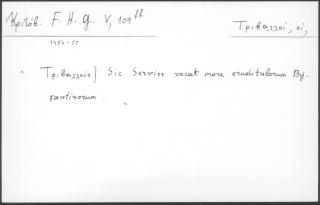 Κριτόβ. F. H. G. V, 109 th
Τριβαλλοί, οἱ,
1454-55
Τριβαλλοὺς] Sic Servios vocat more eruditulorum By-
zantinorum.